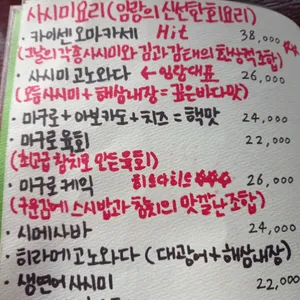 사시미요리(임랑의 신선한회요리)
· 카이센오마카세 Hit 38,000
(그날의 각종사시미와 김과 감태의 환상적조합)
· 사시미고노와다 ← 임랑대표 26,000
(모듬사시미 + 해삼내장 = 깊은바다맛)
· 마구로+아보카도+치즈 = 핵맛 24,000
· 마구로육회 22,000
(최고급 참치로 만든육회)
· 마구로케익 26,000
(구운김에 스시밥과 참치의 맛깔난조합)
· 시메사바 24,000
· 히라메고노와다 (대광어+해삼내장)
· 생연어사시미 22,000